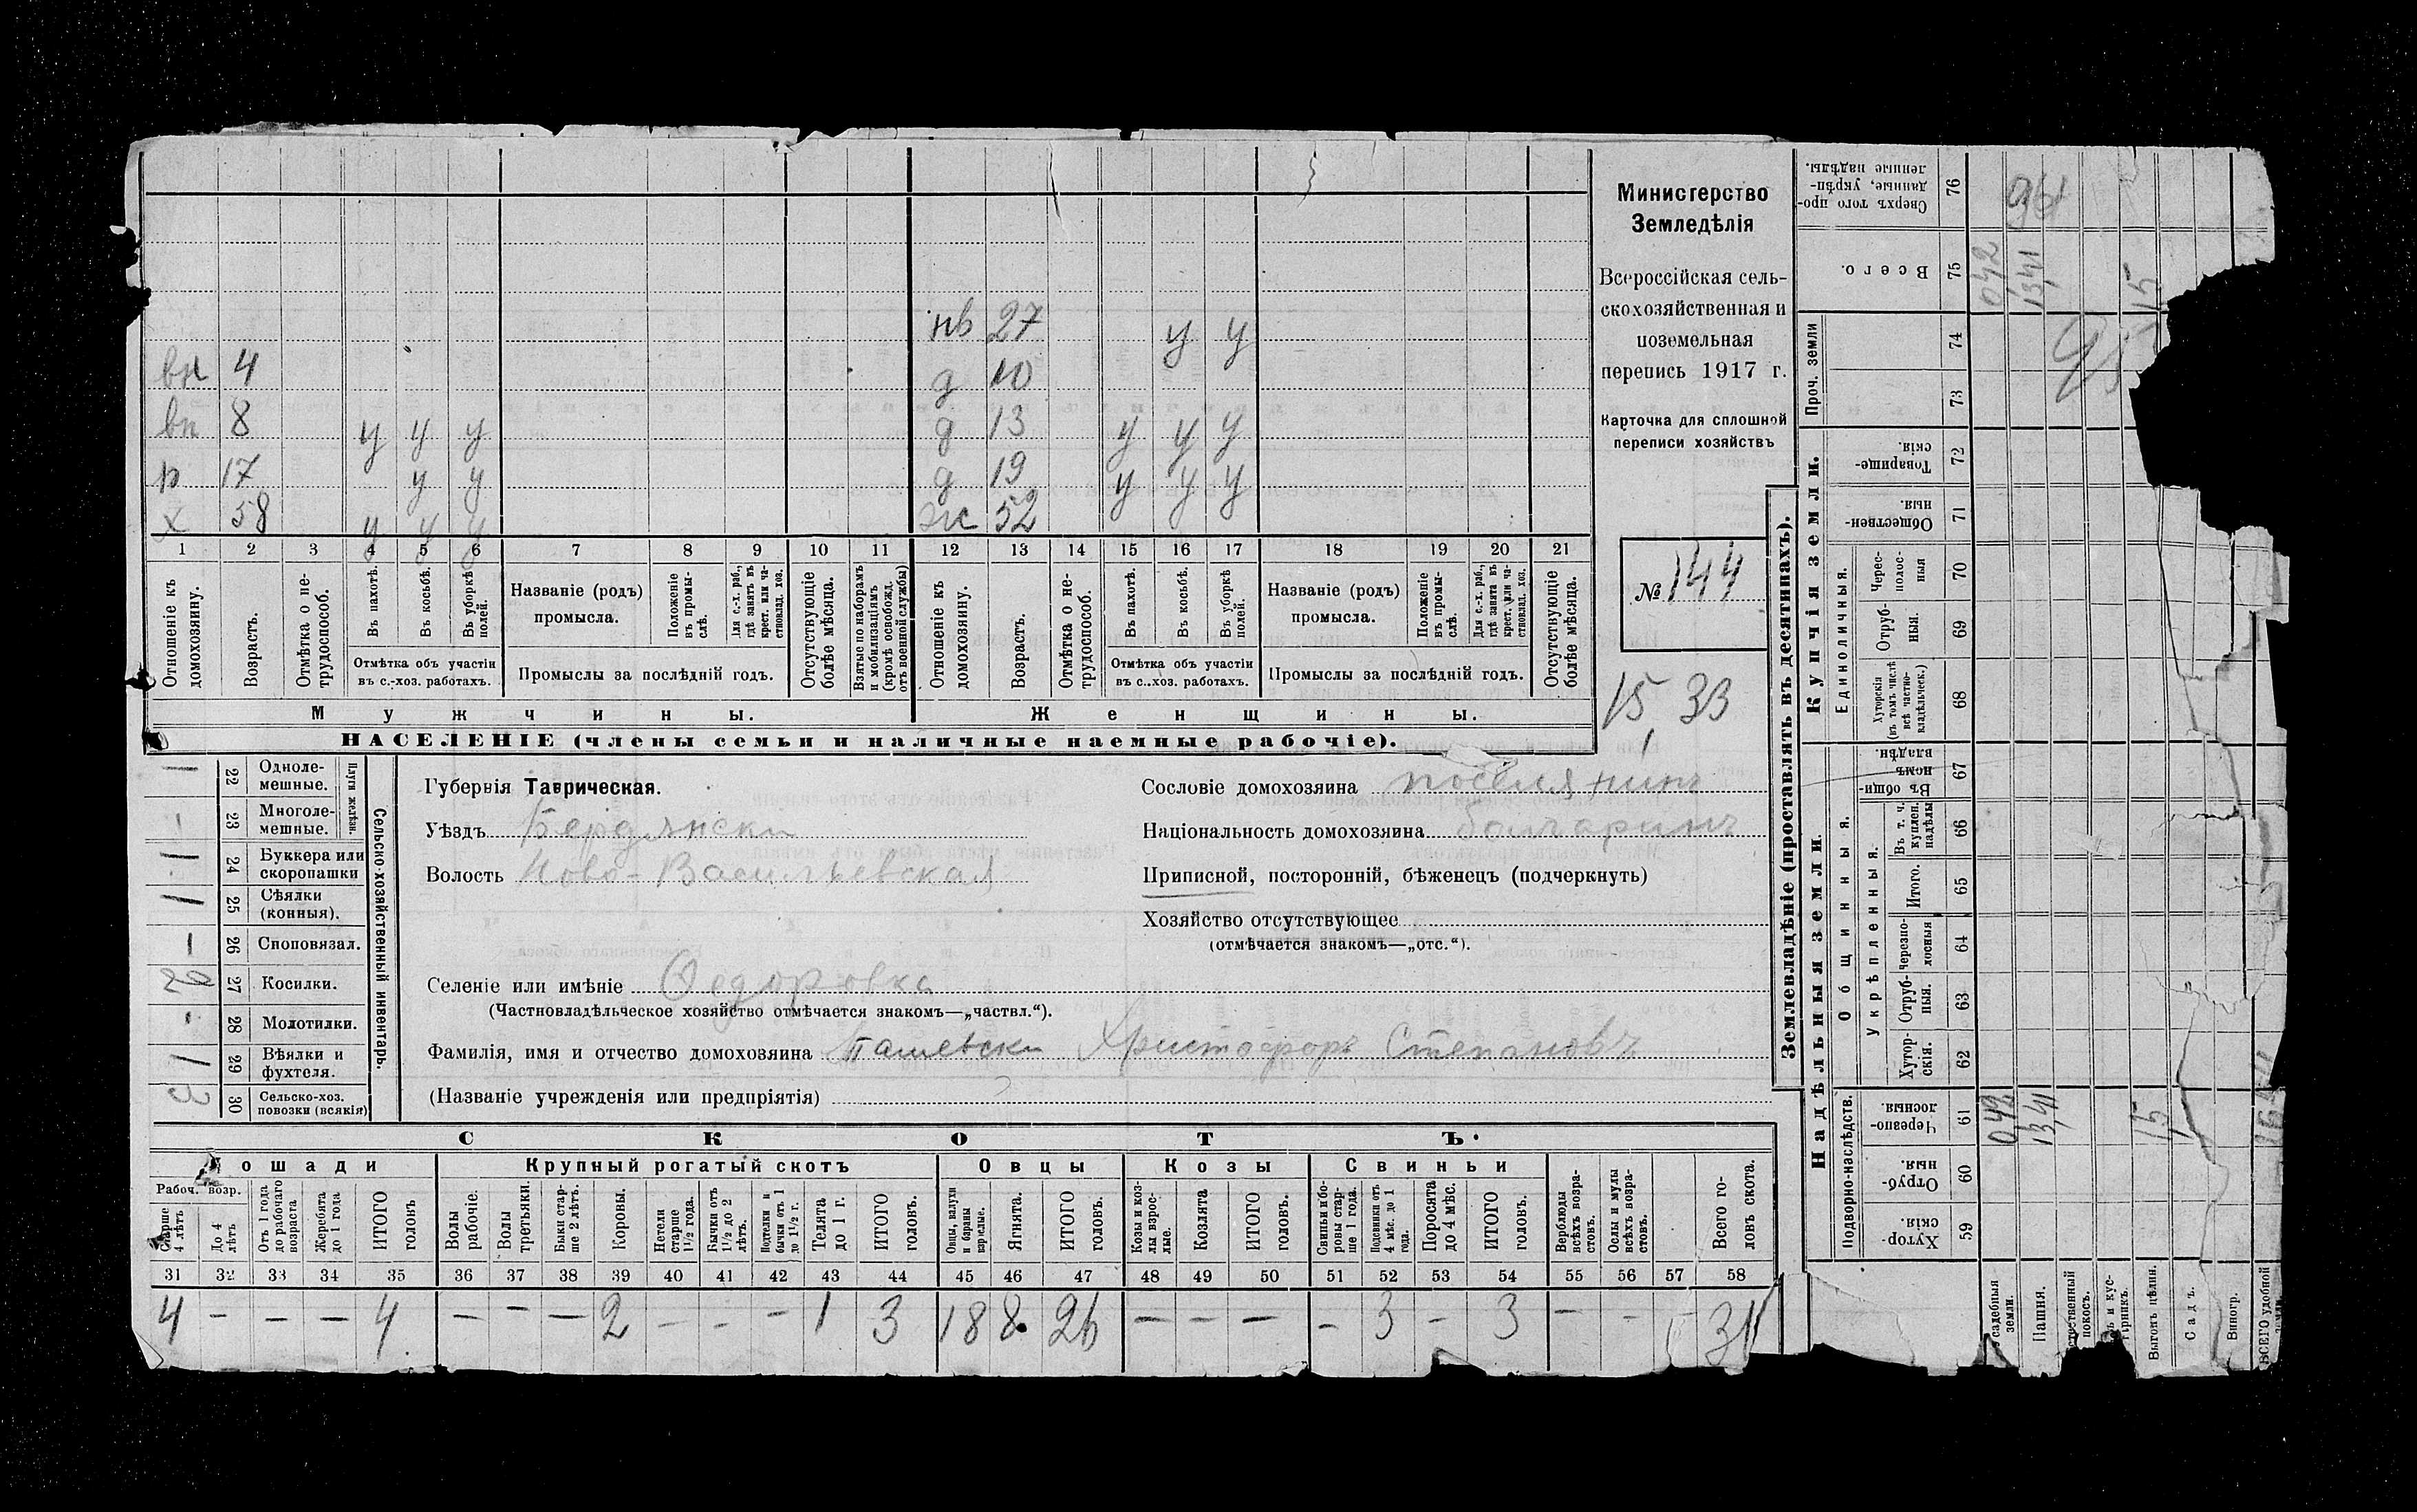 нв 27 у у
вн 4 д 10
вп 8 у у у д 13 у у у
п 17 у у д 19 у у у
х 58 у у у ж 52
1 2 3 4 5 6 7 8 9 10 11 12 13 14 15 16 17 18 19 20 21
Отношеніе къ домохозяину.
Возрастъ.
Отмѣтка о нетрудоспособ.
Въ пахотѣ.
Въ косьбѣ.
Въ уборкѣ полей.
Отмѣтка объ участіи
въ с.-хоз. работахъ.
Названіе (родъ)
промысла.
Положеніе въ промыслѣ.
Для с.-х. раб., гдѣ занятъ въ крест. или частновлад. хоз.
Промыслы за послѣдній годъ.
Отсутствующіе болѣе мѣсяца.
Взятые по наборамъ и мобилизаціямъ (кромѣ освобожд. отъ военной службы)
Отношеніе къ домохозяину.
Возрастъ.
Отмѣтка о нетрудоспособ.
Въ пахотѣ.
Въ косьбѣ.
Въ уборкѣ полей.
Отмѣтка объ участіи
въ с.-хоз. работахъ.
Названіе (родъ)
промысла.
Положеніе въ промыслѣ.
Для с.-х. раб., гдѣ занята въ крест. или частновлад. хоз.
Промыслы за послѣдній годъ.
Отсутствующіе болѣе мѣсяца.
Мужчины. Женщины.
НАСЕЛЕНІЕ (члены семьи и наличные наемные рабочіе).
Министерство
Земледѣлія
Всероссійская сель-
скохозяйственная и
поземельная
перепись 1917 г.
Карточка для сплошной
переписи хозяйствъ
№ 144
15 33
1
Сельско-хозяйственный инвентарь.
Плуги желѣзн.
1 22 Одноле-
мешные.
- 23 Многоле-
мешные.
1 24 Буккера или
скоропашки
1 25 Сѣялки
(конныя).
- 26 Сноповязал.
2 27 Косилки.
- 28 Молотилки.
1 29 Вѣялки и
фухтеля.
3 30 Сельско-хоз.
повозки (всякія)
Губернія Таврическая.
Уѣздъ Бердянски
Волость Ново-Васильевская
Селеніе или имѣніе Ѳедоровка
(Частновладѣльческое хозяйство отмѣчается знакомъ—„частвл.“).
Фамилія, имя и отчество домохозяина Христофоръ Степановъ
(Названіе учрежденія или предпріятія)
Сословіе домохозяина поселянинъ
Національность домохозяина болгаринъ
Приписной, посторонній, бѣженецъ (подчеркнуть)
Хозяйство отсутствующее
(отмѣчается знакомъ—„отс.“).
СКОТЪ.
Лошади Крупный рогатый скотъ Овцы Козы Свиньи
Рабоч. возр.
Старше 4 лѣтъ
До 4 лѣтъ
Отъ 1 года до рабочаго возраста
Жеребята до 1 года
ИТОГО головъ
Волы рабочіе.
Волы третьяки.
Быки старше 2 лѣтъ.
Коровы.
Нетели старше 1½ года.
Бычки отъ 1½ до 2 лѣтъ.
Подтелки и бычки отъ 1 до 1½ г.
Телята до 1 г.
ИТОГО головъ.
Овцы, валухи и бараны взрослые.
Ягнята.
ИТОГО головъ.
Козы и козлы взрослые.
Козлята
ИТОГО головъ.
Свиньи и боровы старше 1 года.
Подсвинки отъ 4 мѣс. до 1 года.
Поросята до 4 мѣс.
ИТОГО головъ.
Верблюды всѣхъ возрастовъ.
Ослы и мулы всѣхъ возрастовъ.
Всего головъ скота.
31 32 33 34 35 36 37 38 39 40 41 42 43 44 45 46 47 48 49 50 51 52 53 54 55 56 57 58
4 - - - 4 - - - 2 - - - 1 3 18 8 26 - - - - 3 - 3 - - -
Землевладѣніе (проставлять въ десятинахъ).
Купчія земли.
Надѣльныя земли.
Проч. земли
Единоличныя.
Общинныя.
Укрѣпленныя.
Подворно-наслѣдств.
Сверхъ того проданные, укрѣпленные надѣлы. 76
Всего. 75 042 13,41 15
74
73
Товарищескія. 72
Общественныя 71
Черес-полосныя 70
Отрубныя. 69
Хуторскія (въ томъ числѣ всѣ частновладѣльческ.) 68
Въ общинномъ владѣн. 67
Въ т. ч. куплен. надѣлы 66
Итого. 65
Черезполосныя 64
Отрубныя. 63
Хуторскія. 62
Черезполосныя. 61 042 13,41 15
Отрубныя. 60
Хуторскія. 59
садебныя земли.
Пашня.
покосъ.
Выгонъ цѣлин.
Садъ.
Виногр.
ВСЕГО удобной